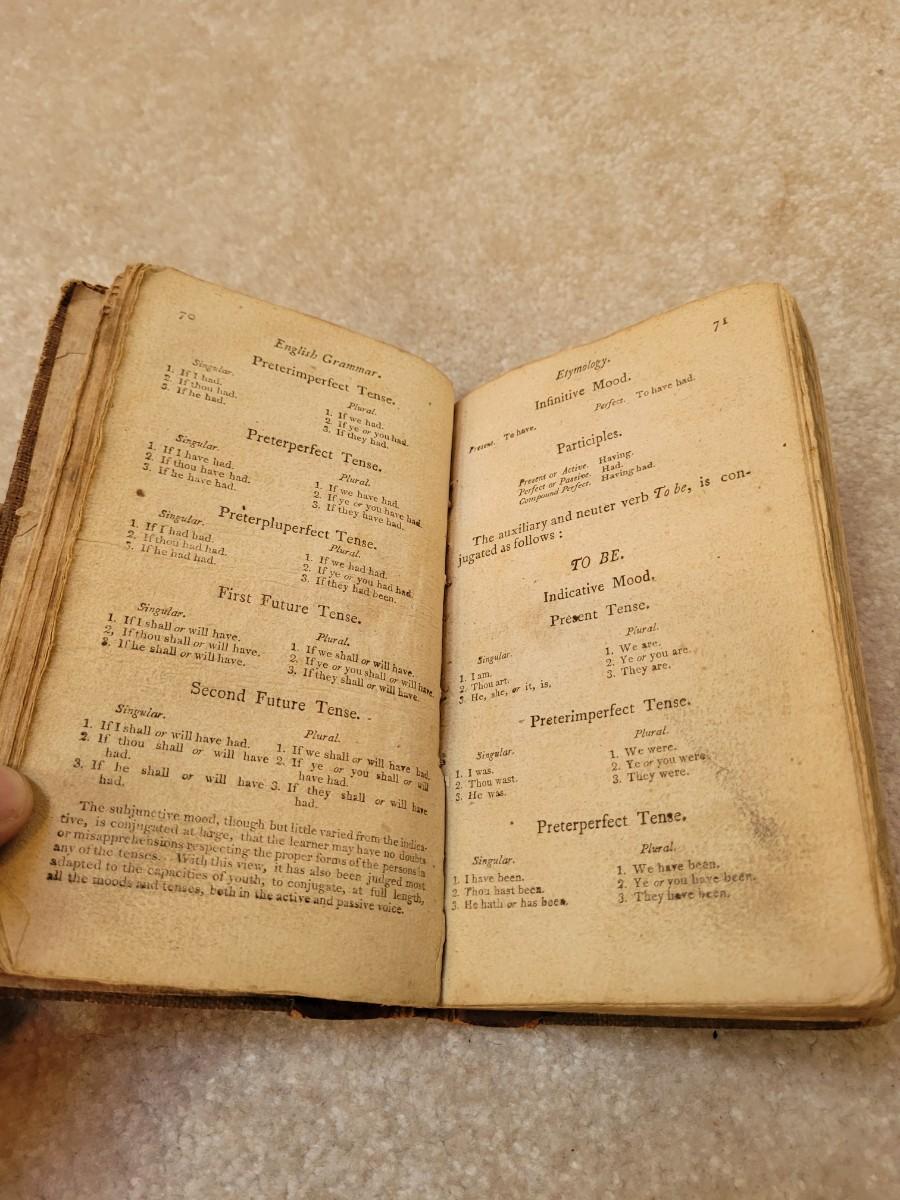 70
English Grammar.
Preterimperfect Tense.
Singular.
1. If I had.
2. If thou had.
3. If he had.
Plural.
1. If we had.
2. If ye or you had.
3. If they had.
Preterperfect Tense.
Singular.
1. If I have had.
2. If thou have had.
3. If he have had.
Plural.
1. If we have had.
2. If ye or you have had.
3. If they have had.
Preterpluperfect Tense.
Singular.
1. If I had had.
2. If thou had had.
3. If he had had.
Plural.
1. If we had had.
2. If ye or you had had.
3. If they had been.
First Future Tense.
Singular.
1. If I shall or will have.
2. If thou shall or will have.
3. If he shall or will have.
Plural.
1. If we shall or will have.
2. If ye or you shall or will have.
3. If they shall or will have.
Second Future Tense.
Singular.
1. If I shall or will have had.
2. If thou shall or will have
had.
3. If he shall or will have
had.
Plural.
1. If we shall or will have had.
2. If ye or you shall or will
have had.
3. If they shall or will have
had.
The subjunctive mood, though but little varied from the indica-
tive, is conjugated at large, that the learner may have no doubts
or misapprehensions respecting the proper forms of the persons in
any of the tenses. With this view, it has also been judged most
adapted to the capacities of youth, to conjugate, at full length,
all the moods and tenses, both in the active and passive voice.
71
Etymology.
Infinitive Mood.
Present. To have.
Perfect. To have had.
Participles.
Present or Active. Having.
Perfect or Passive. Had.
Compound Perfect. Having had.
The auxiliary and neuter verb To be, is con-
jugated as follows :
TO BE.
Indicative Mood.
Present Tense.
Singular.
1. I am.
2. Thou art.
3. He, she, or it, is.
Plural.
1. We are.
2. Ye or you are.
3. They are.
Preterimperfect Tense.
Singular.
1. I was.
2. Thou wast.
3. He was.
Plural.
1. We were.
2. Ye or you were.
3. They were.
Preterperfect Tense.
Singular.
1. I have been.
2. Thou hast been.
3. He hath or has been.
Plural.
1. We have been.
2. Ye or you have been.
3. They have been.